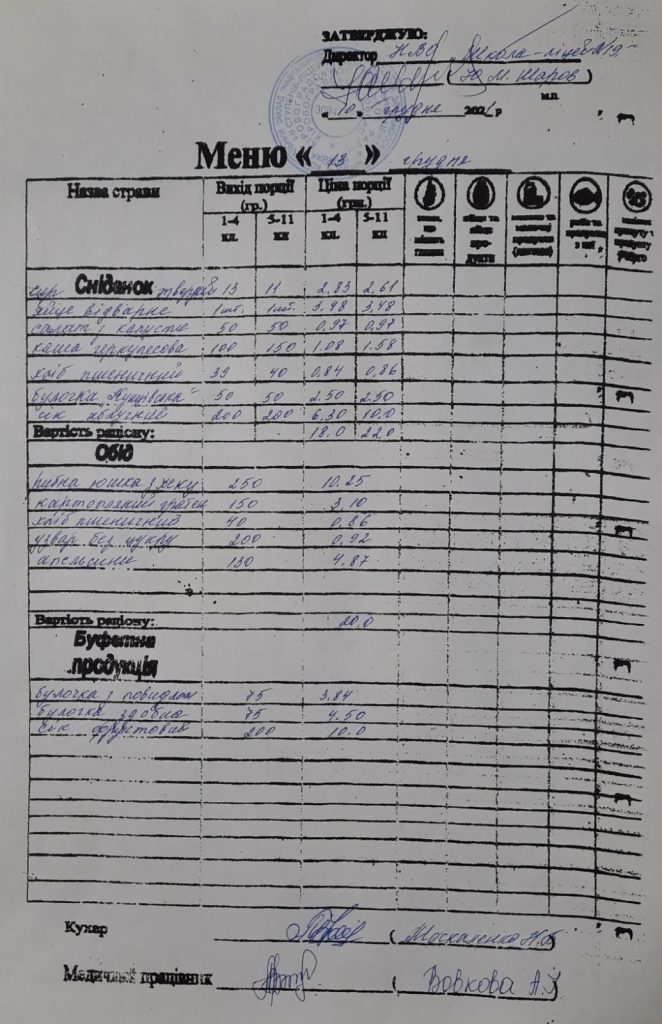 ЗАТВЕРДЖУЮ:
Директор НВО Школа-ліцей №19
( Ю.М. Шаров )
м.п.
« 10 » грудня 2021 р
Меню « 13 » грудня
Назва страви Вихід порції (гр.) Ціна порції (грн.)
1-4 кл. 5-11 кл 1-4 кл. 5-11 кл
Сніданок
сир твердий 13 11 2,83 2,61
яйце відварне 1шт. 1шт. 3,48 3,48
салат з капусти 50 50 0,97 0,97
каша геркулесова 100 150 1.08 1.58
хліб пшеничний 39 40 0,84 0,86
булочка 50 50 2.50 2.50
сік яблучний 200 200 6.30 10.0
Вартість раціону: 18.0 22.0
Обід
рибна юшка з хеку 250 10.25
картопляний гратен 150 3,10
хліб пшеничний 40 0,86
узвар без цукру 200 0,92
апельсини 130 4.87
Вартість раціону: 20.0
Буфетна продукція
булочка з повидлом 75 3,84
булочка здобна 75 4.50
сік фруктовий 200 10.0
Кухар ( Москаленко Н.Б. )
Медичний працівник ( Вовкова А.І. )